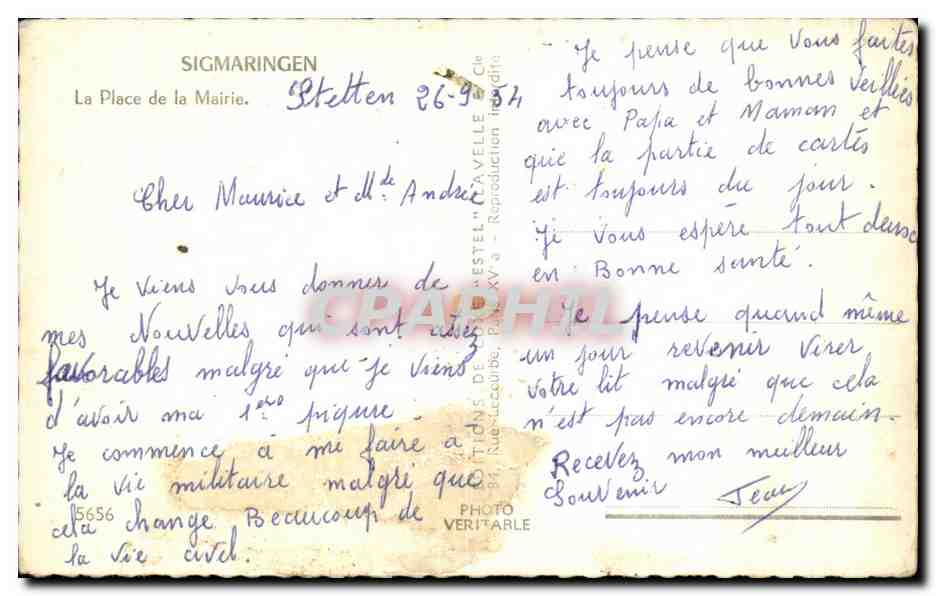 SIGMARINGEN
La Place de la Mairie.
Stetten 26-9-54
Cher Maurice et Mde Andrée
Je viens vous donner de
mes Nouvelles qui sont assez
favorables malgré que je viens
d'avoir ma 1ere piqure.
Je commence à me faire a
la vie militaire malgré que
cela change Beaucoup de
la vie civel.
5656
PHOTO
VERITABLE
EDITIONS D'ESTEL" LAVELLE & Cie
84, Rue Lecourbe, Paris XVe - Reproduction interdite
Je pense que vous faites
toujours de bonnes veilliés
avec Papa et Maman et
que la partie de cartes
est toujours du jour.
Je vous espère tout deux
en Bonne santé.
Je pense quand même
un jour revenir virer
votre lit malgré que cela
n'est pas encore demain.
Recevez mon meilleur
Souvenir
Jean
CPAPHIL